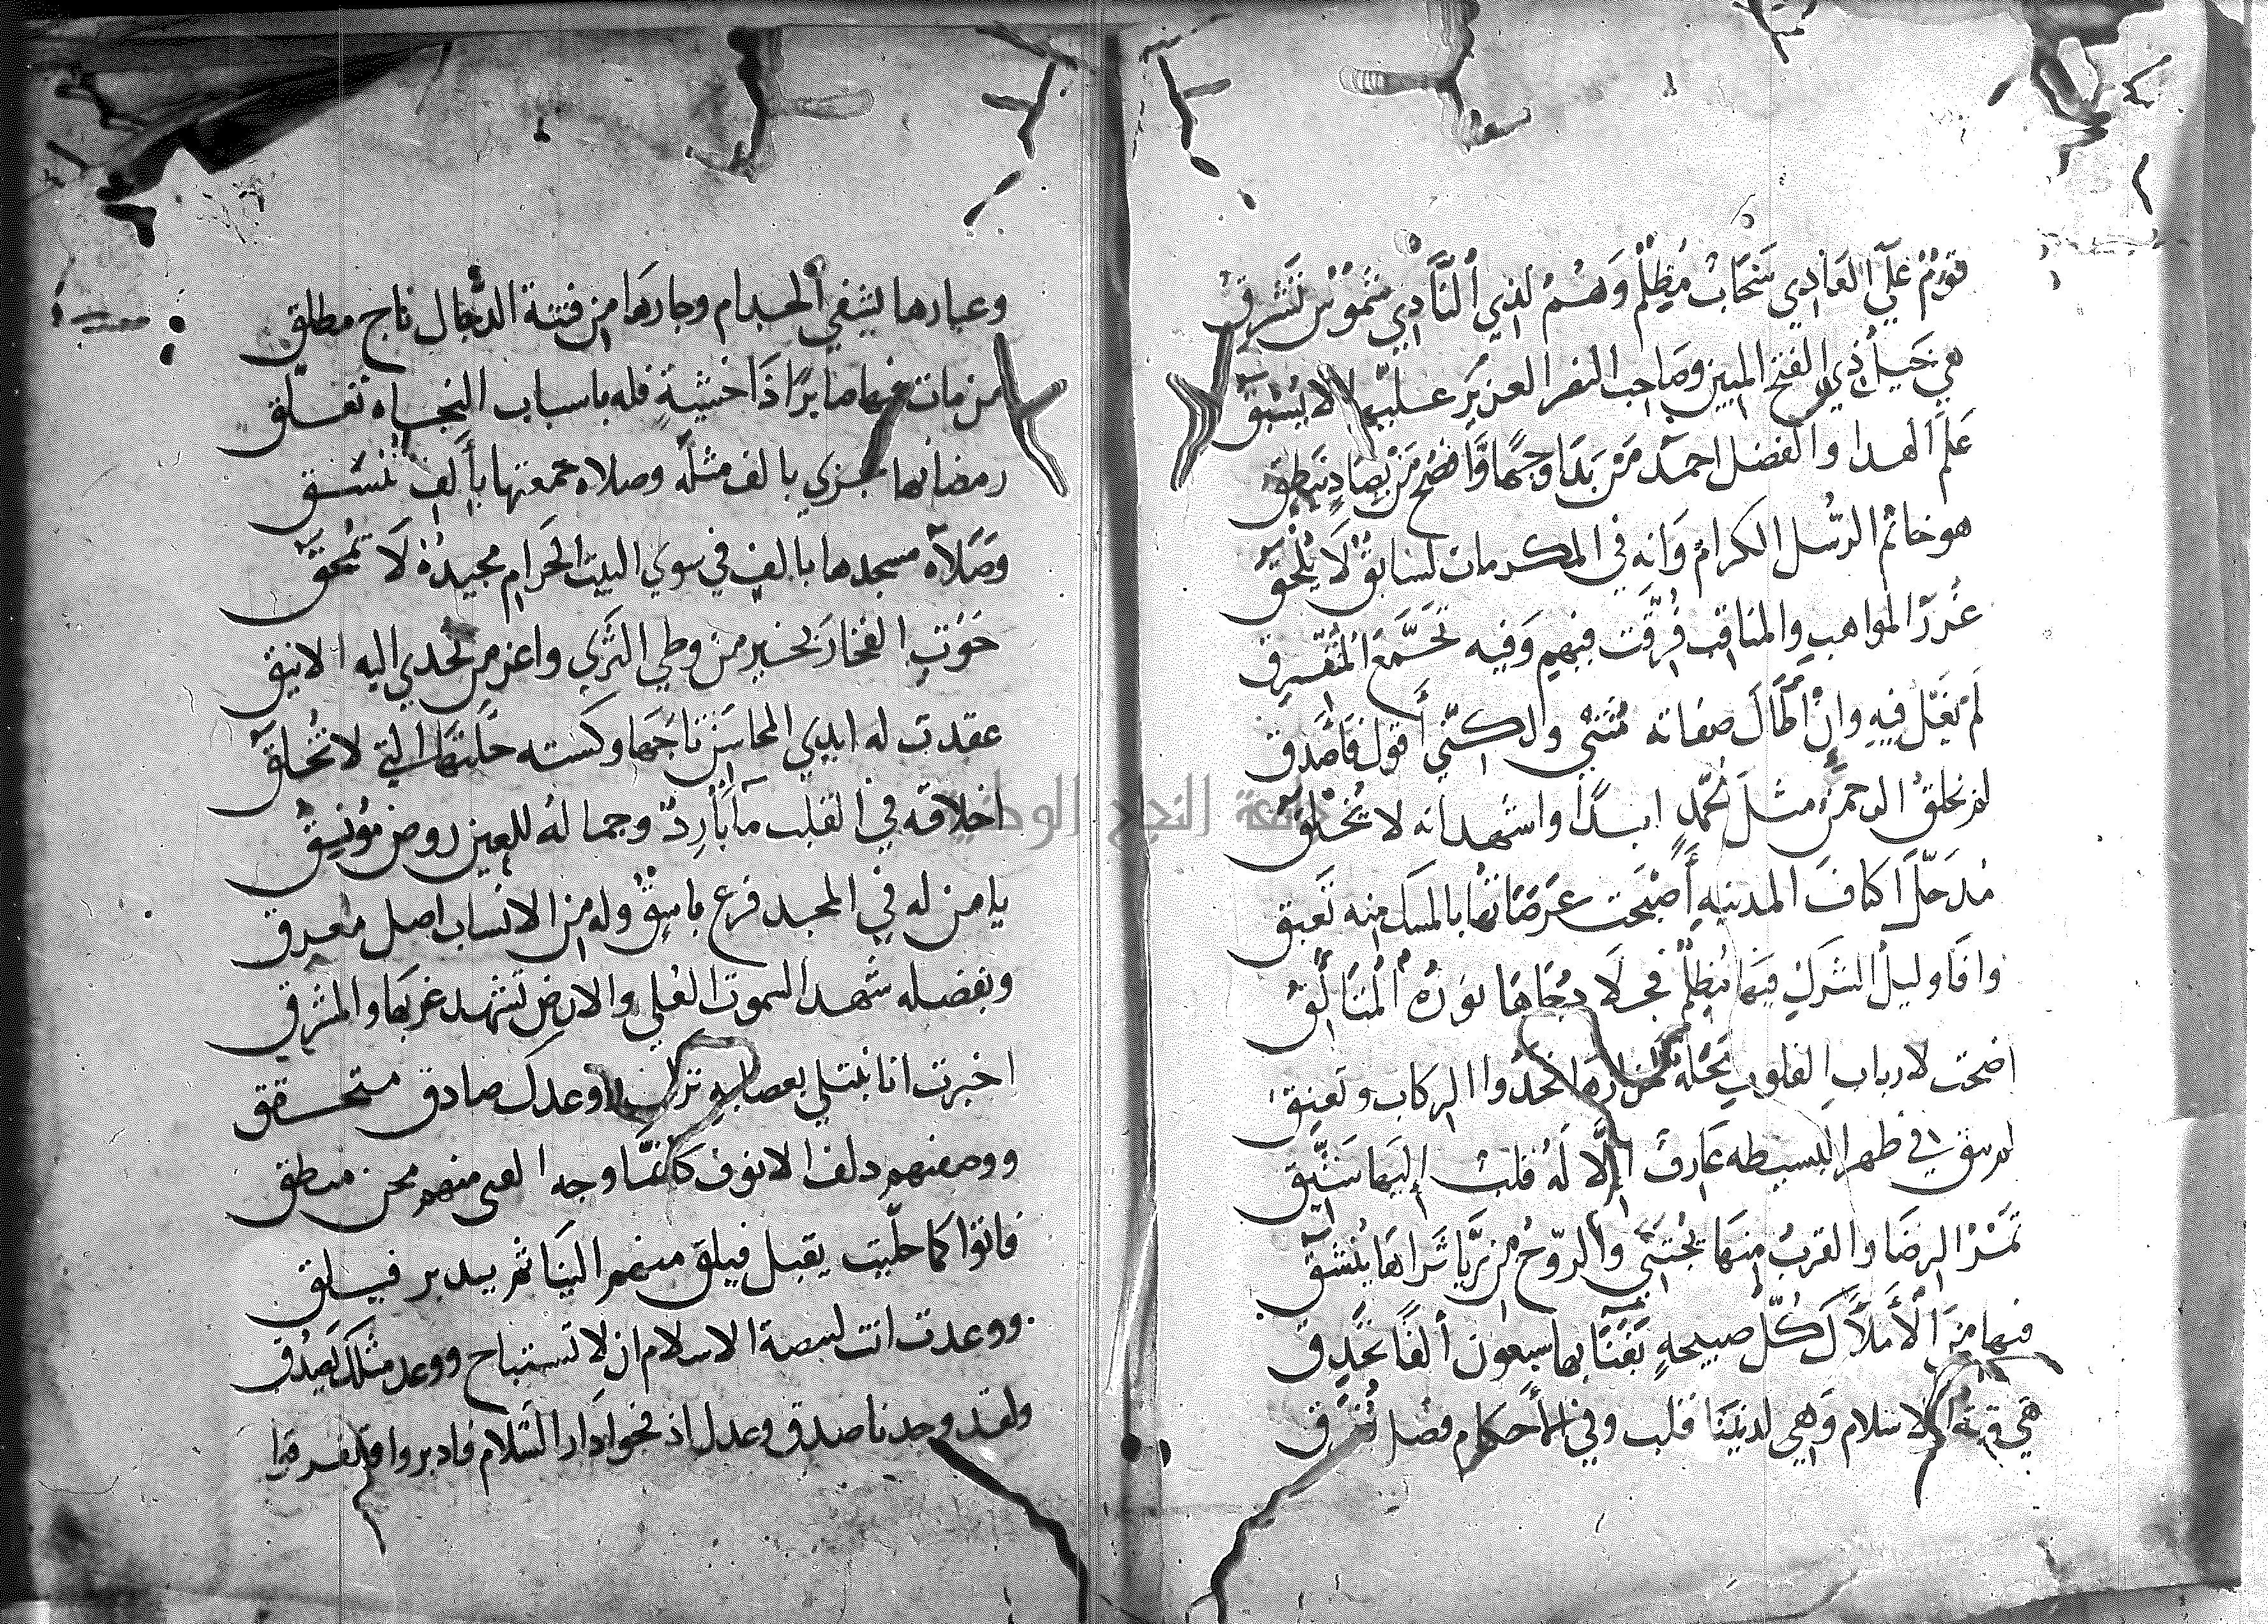 قَوْمٌ عَلَى العَادِي سَحَابٌ مُظْلِمٌ وَهُمُ لِذِي النَّادِي شُمُوْسٌ تُشْرِقُ
هي خَيلُ ذي الفتح المبين وصَاحِب النصر العزيز عليه لا لا يُسْبَقُ
عَلَمُ الهدا والفضل احمد مَنْ بَدَا وَجهًا وَافصَحُ مَنْ بِضَادٍ يَنطِقُ
هو خاتمُ الرّسُل الكرام وَانه في المكرمات لسابقٌ لَا يُلْحَقُ
غُرَرُ المواهبِ والمناقب فُرِّقَت فيهم وَفيه تَجَمَّعَ المُتَفَرِّق
لَم يَغْلُ فِيهِ وإنْ أطَالَ صفاته مُثنِي ولكنّي أقول فَاصدق
لم يخلقُ الرحمنُ مثلَ مُحَمَّدٍ ابدًا واشهد انه لا يُخْلَقُ
مُذ حَلَّ اكنافَ المدينةِ أَصْبَحت عَرَصَاتُهَا بالمسك منه تَعبق
وافَا وليلُ الشرك فيهَا مُظلمٌ فجلَا دُجَاهَا نورُهُ المُتَألّقُ
اضحت لارباب القلوبِ الركاب وتعنق
لم يبق في ظهر البسيطه عَارِفٌ إلَّا لَهُ قلبٌ إليهَا شَيِّق
ثَمَرُ الرضَا والقربُ منهَا يُجْتَنَى والروّحُ من رَيَّا ثَراهَا يُنْشَقُ
فيها من الأملاَك كُلّ صبيحهٍ بها سبعون ألفًا تُحْدِق
هي قبة الاسلام وَهي لديننَا قلب وفي الأحكام فصل تُفرق
وغبارها يشفي الجدام وجارهَا من فتنة الدّجال ناج مطلق
من مات فيها صابرًا ذَا خشيةٍ فله باسباب النجاه تعلّق
رمضانها يجزي بالف مثله وصلاه جمعتها بألف تُنْسَق
وَصَلاَه مسجدها بالف في سوي البيت الحَرام مجيدُهُ لَا تمحق
حَوَتِ الفخار بخير من وطي الثرى واعز من تحدي اليه الانيق
عقدت له ايدي المحاسن تاجَهَا وكسته حلّتهَا التي لا تُخْلَق
اخلاقه في القلب مآ بَارِدٌ وجماله للعين روض مُونِقُ
يا من له في المجد فرع باسِقٌ وله من الانساب اصل معرق
وبفضله شهد السموت العُلى والارض تشهد غربهَا والمشرق
اخبرت انا نبتلي بعصابهِ ووعدك صادق متحقق
ووصفتهم دلف الانوف كانّمَا وجه منهم مجن مطرق
فاتوا كما حلّيت يقبل فيلق منهم الينَا ثم يدبر فيلق
ووعدت انت لبيضة الاسلام ان لا تستباح ووعد مثلك يَصدُق
ولقد وجدنا صدق وعدك اذ نحوا دار السّلام فادبروا وتفرقوا
جامعة النجاح الوطنية